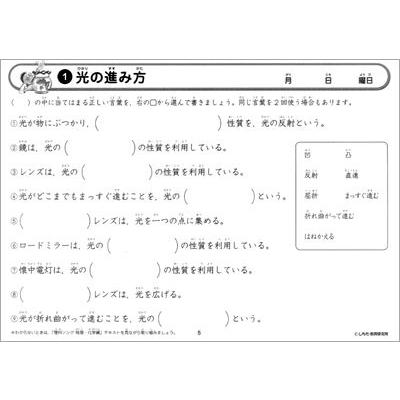 1 光の進み方 月 日 曜日
( )の中に当てはまる正しい言葉を、右の□から選んで書きましょう。同じ言葉を2回使う場合もあります。
①光が物にぶつかり、( )性質を、光の反射という。
②鏡は、光の( )の性質を利用している。
③レンズは、光の( )の性質を利用している。
④光がどこまでもまっすぐ進むことを、光の( )という。
⑤( )レンズは、光を一つの点に集める。
⑥ロードミラーは、光の( )の性質を利用している。
⑦懐中電灯は、光の( )の性質を利用している。
⑧( )レンズは、光を広げる。
⑨光が折れ曲がって進むことを、光の( )という。
凹 凸
反射 直進
屈折 まっすぐ進む
折れ曲がって進む
はねかえる
※わからないときは、「理科ソング 物理・化学編」テキストを見ながら取り組みましょう。
5
©しちだ・教育研究所